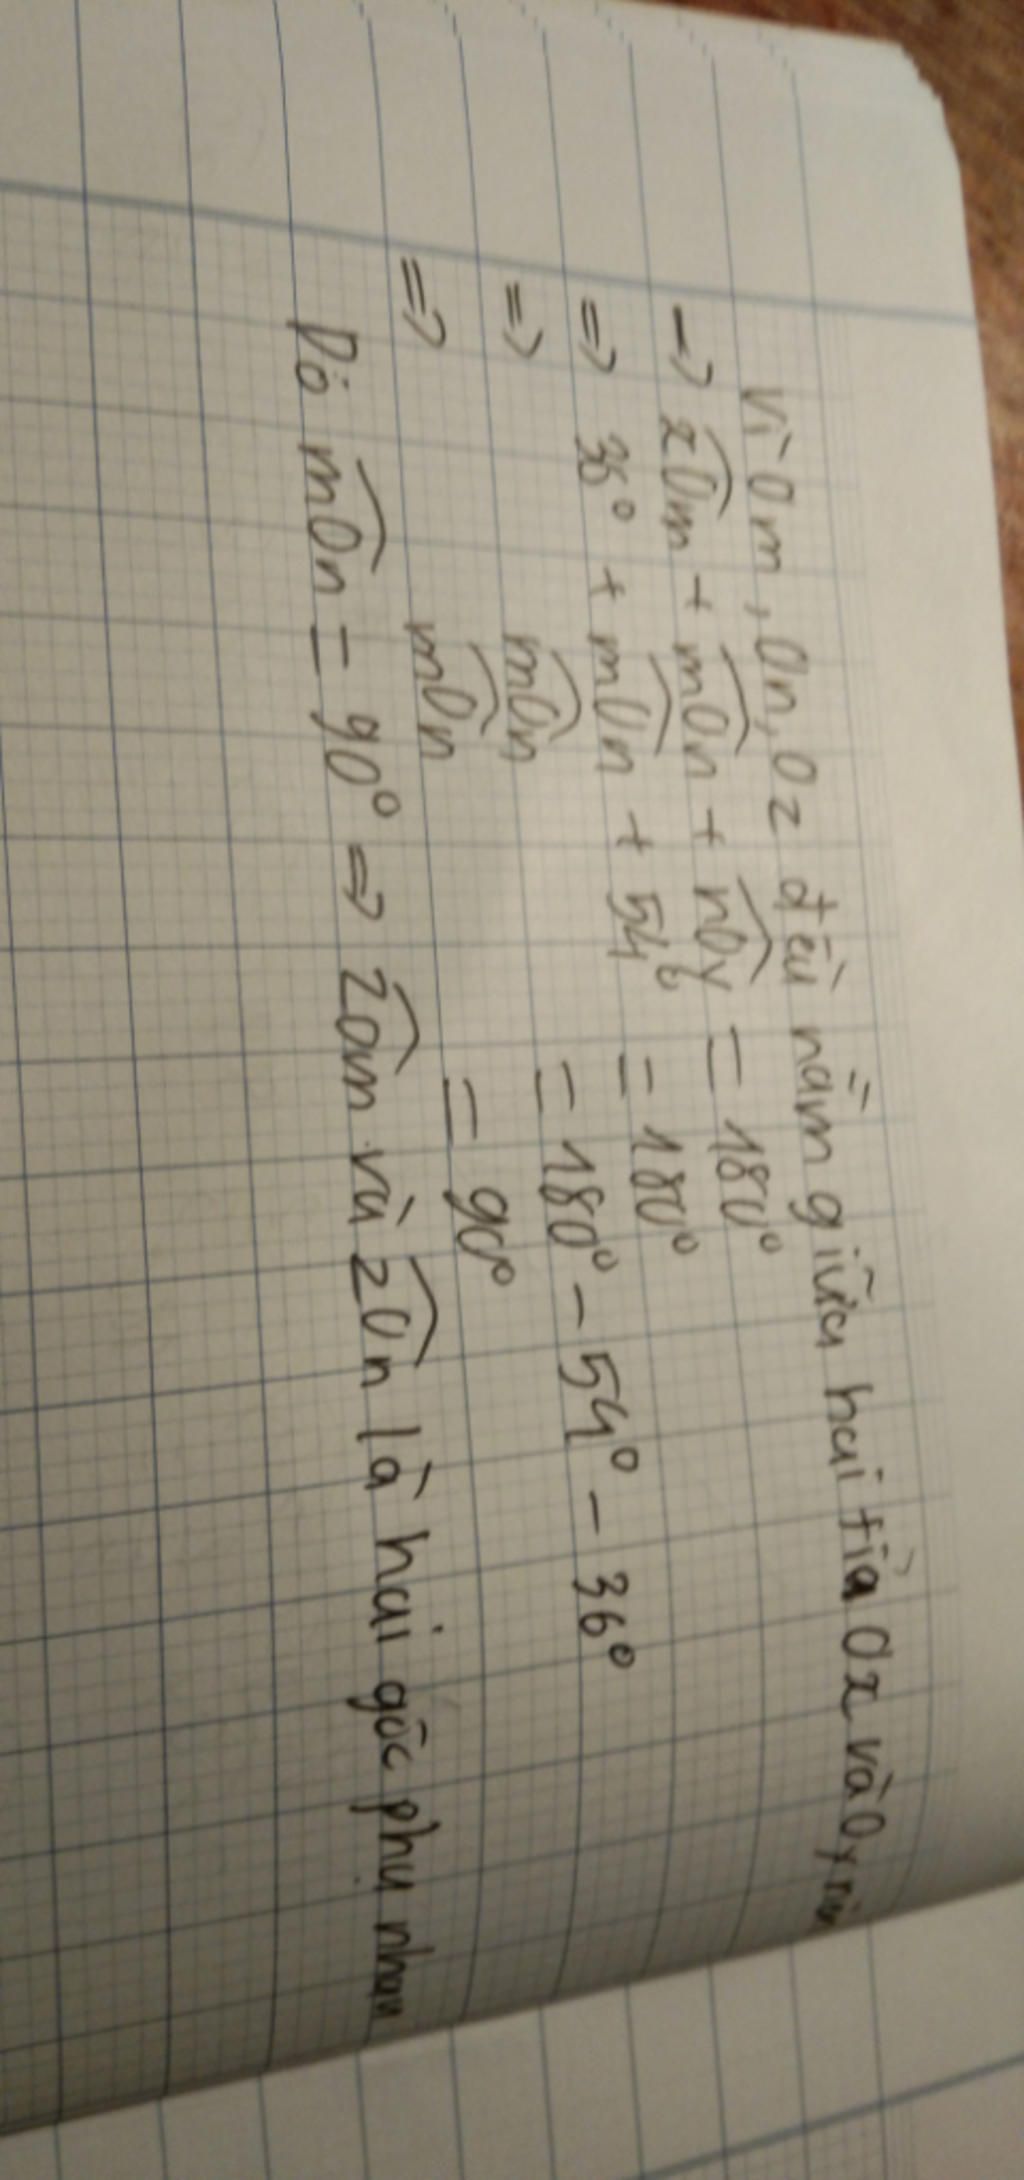 Vì Om, On, Oz đều nằm giữa hai tia Ox và Oy nên
→ xOm + mOn + nOy = 180°
=> 36° + mOn + 54° = 180°
=> mOn = 180° - 54° - 36°
=> mOn = 90°
Do mOn = 90° => zOm và zOn là hai góc phụ nhau